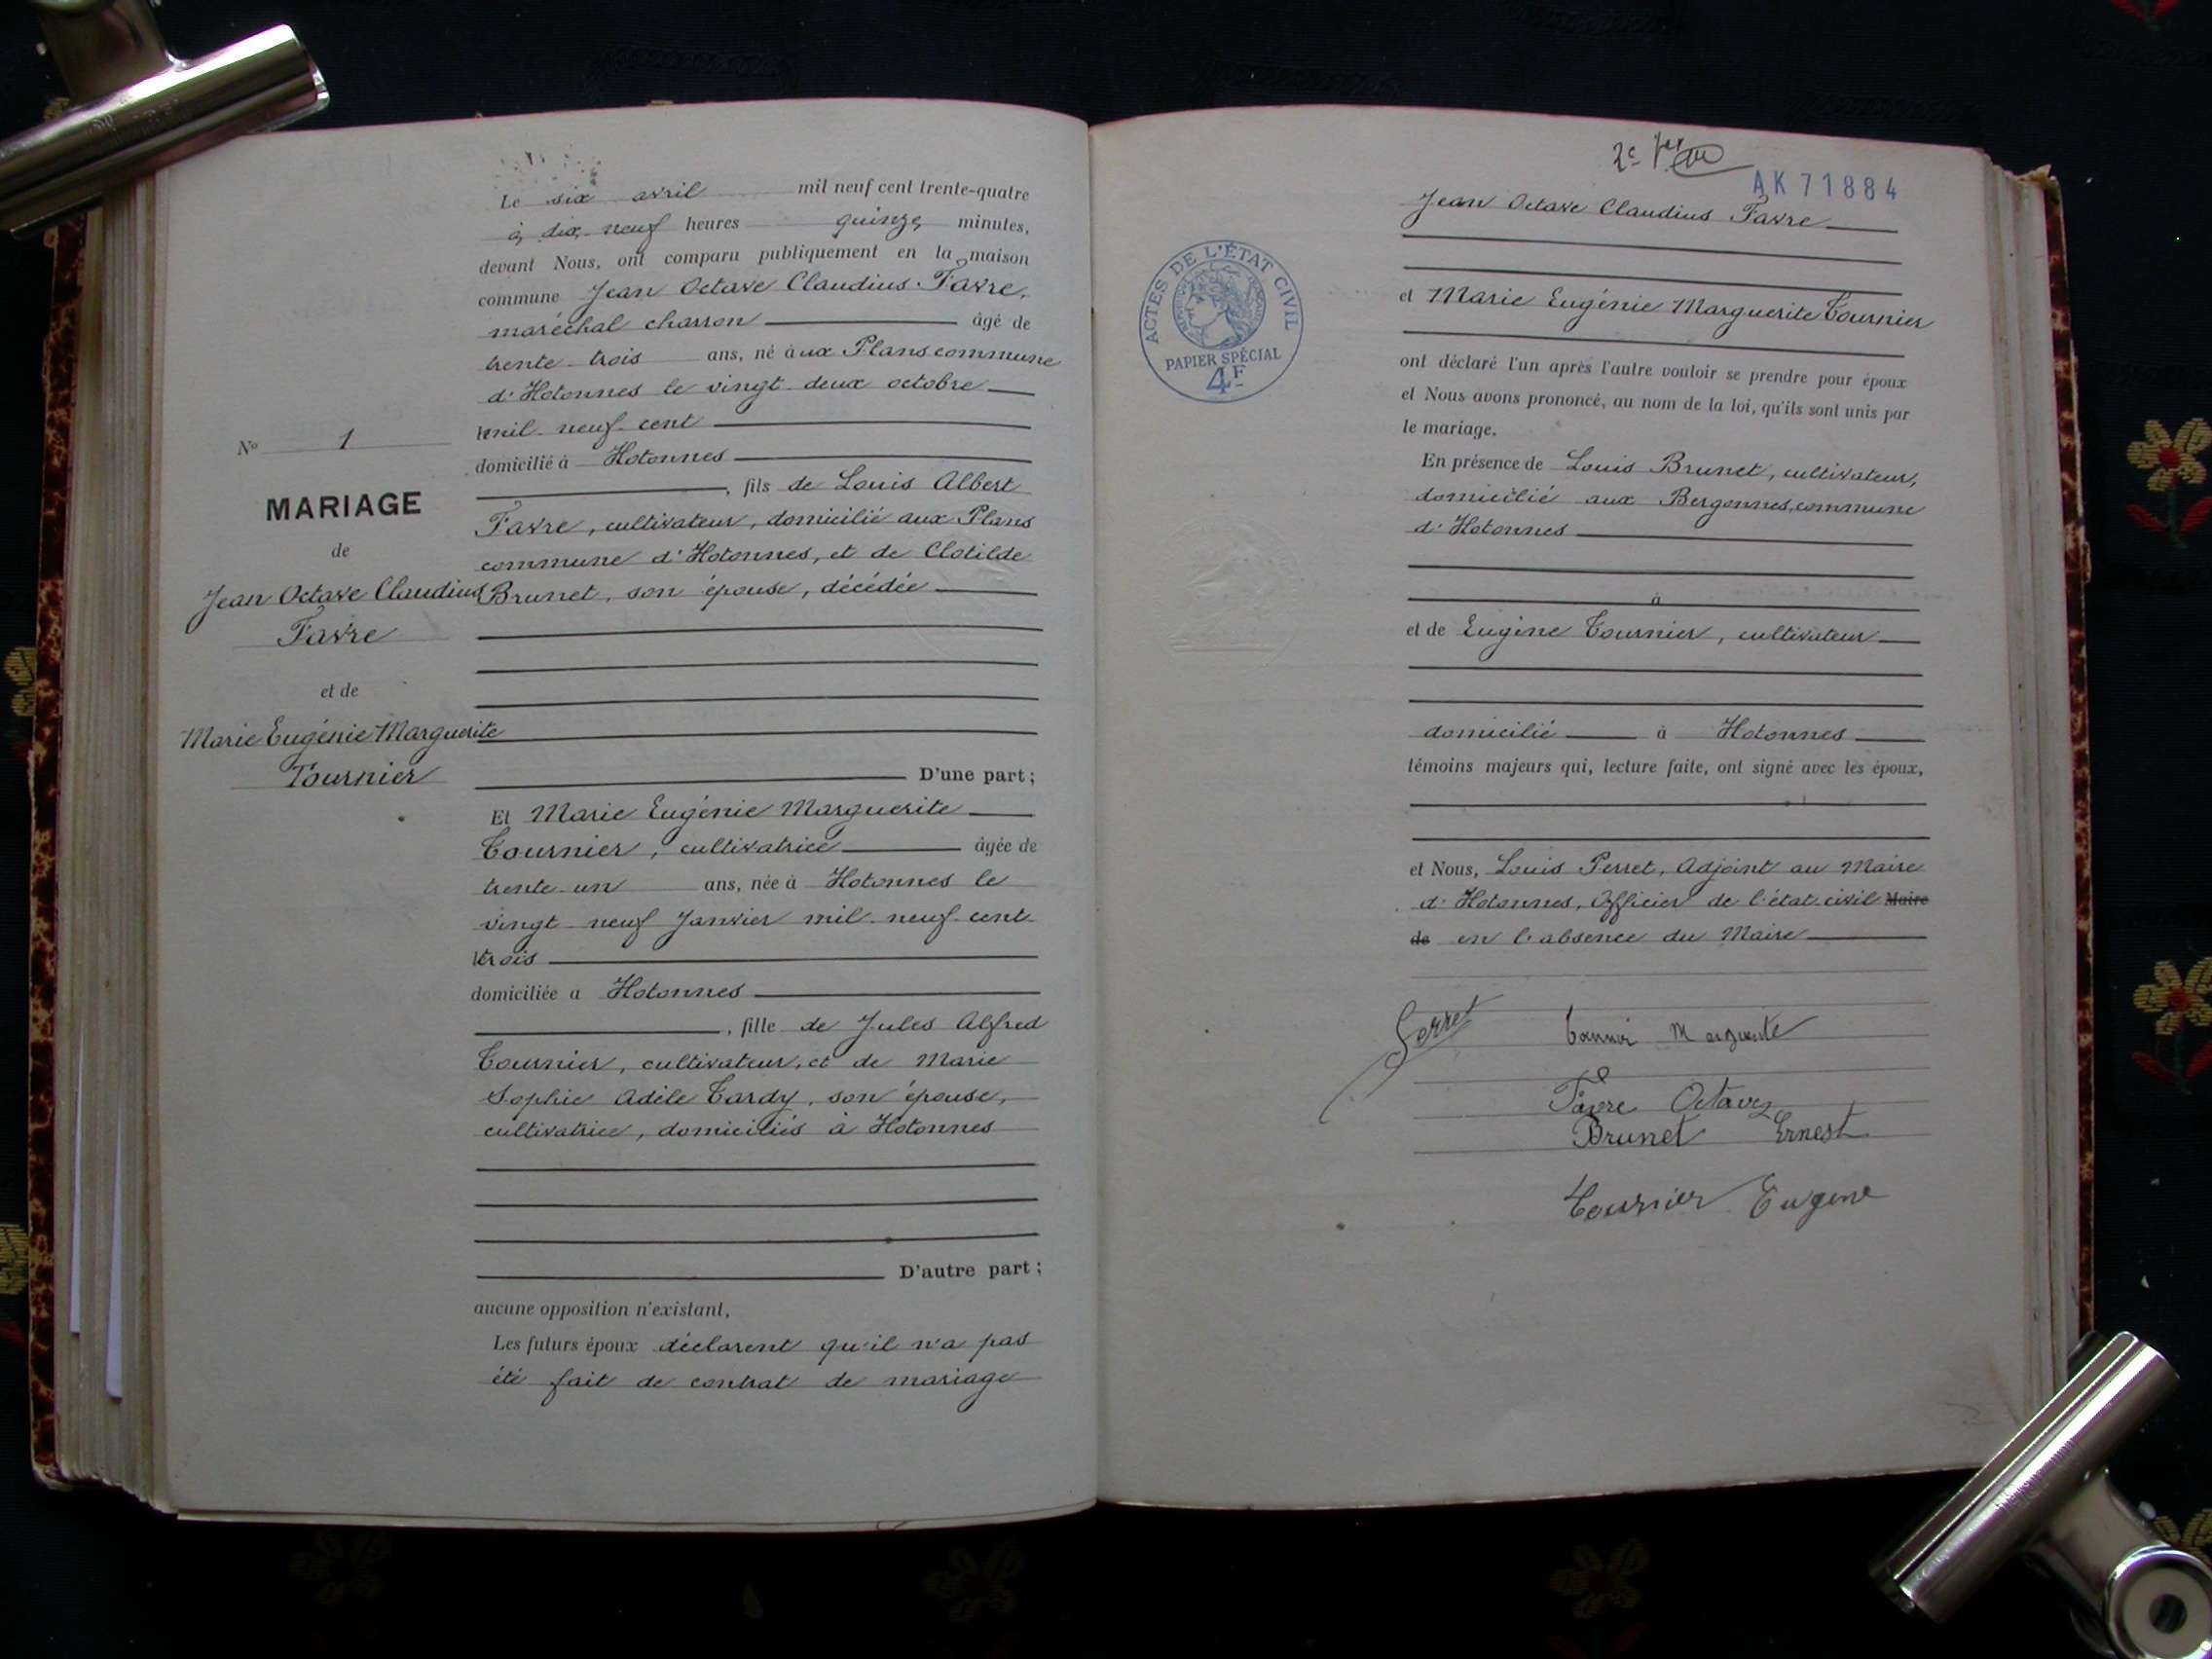 N° 1
MARIAGE
de
Jean Octave Claudius
Favre
et de
Marie Eugénie Marguerite
Tournier
Le six avril mil neuf cent trente-quatre
à dix-neuf heures quinze minutes,
devant Nous, ont comparu publiquement en la maison
commune Jean Octave Claudius Favre,
maréchal charron âgé de
trente-trois ans, né aux Plans commune
d'Hotonnes le vingt-deux octobre
mil-neuf-cent
domicilié à Hotonnes
, fils de Louis Albert
Favre, cultivateur, domicilié aux Plans
commune d'Hotonnes, et de Clotilde
Brunet, son épouse, décédée
D'une part;
Et Marie Eugénie Marguerite
Tournier, cultivatrice âgée de
trente-un ans, née à Hotonnes le
vingt-neuf Janvier mil-neuf-cent-
trois
domiciliée à Hotonnes
, fille de Jules Alfred
Tournier, cultivateur, et de Marie
Sophie Adèle Tardy, son épouse,
cultivatrice, domiciliés à Hotonnes
D'autre part;
aucune opposition n'existant,
Les futurs époux déclarent qu'il n'a pas
été fait de contrat de mariage
2e
AK 71884
ACTES DE L'ÉTAT CIVIL
PAPIER SPÉCIAL
4F
Jean Octave Claudius Favre
et Marie Eugénie Marguerite Tournier
ont déclaré l'un après l'autre vouloir se prendre pour époux
et Nous avons prononcé, au nom de la loi, qu'ils sont unis par
le mariage.
En présence de Louis Brunet, cultivateur,
domicilié aux Bergonnes, commune
d'Hotonnes
à
et de Eugène Tournier, cultivateur
domicilié à Hotonnes
témoins majeurs qui, lecture faite, ont signé avec les époux,
et Nous, Louis Perret, Adjoint au Maire
d'Hotonnes, Officier de l'état-civil Maire
de en l'absence du Maire
Perret
Tournier Marguerite
Favre Octave
Brunet Ernest
Tournier Eugène